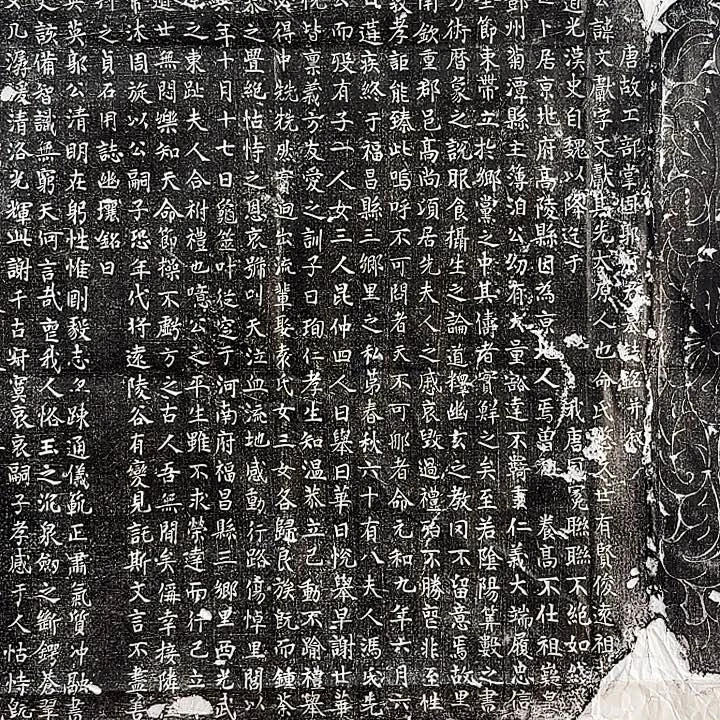 唐故工部掌固郭府君墓誌銘并叙
諱文獻字文獻其先太原人也命氏繁久世有賢俊遠祖
道光漢史自魏以降迄于 我唐冠冕聯聯不絕如絲
之上居京地府高陵縣因為京地人焉曾祖 養高不仕祖崇昌
鄧州菊潭縣主簿洎公幼有大量豁達不羇專仁義大端履忠信
主節束帶立於鄉黨之中其儔者實鮮之矣至若陰陽筭數之書
方術曆象之說服食攝生之論道釋幽玄之教罔不留意焉故里
南欽重郡邑高尚頃居先夫人之戚哀毀過禮殆不勝喪非至性
孝詎能臻此嗚呼不可問者天不可邮者命元和九年六月六
日遘疾終于福昌縣三鄉里之私第春秋六十有八夫人馮氏先
公而歿有子一人女三人昆仲四人曰舉曰華曰悅舉早謝世華
悅皆稟義方友愛之訓子曰珣仁孝生知溫恭立己動不踰禮舉
必得中兢兢然實迥出流輩娶袁氏女三女各歸良族既而鍾荼
蓼之舋絕怙恃之恩哀號叫天泣血流地感動行路傷悼里閭以
其年十月十七日龜筮叶從窆于河南府福昌縣三鄉里西光武
廟之東趾夫人合祔禮也噫公之平生雖不求榮達而行己立
遁世無悶樂知天命節操不虧方之古人吾無間矣僝幸接隣
常沐周旋以公嗣子恐年代將遠陵谷有變見託斯文言不盡善
刊之貞石用誌幽壤銘曰
英英郭公清明在躬性惟剛毅志忽疎通儀範正肅氣質沖融書
文該備智識無窮天何言哉喪我人俗玉之沉泉劍之鋤鍔蒼翠
几潺湲清洛光輝此謝千古窅冥哀哀嗣子孝感于人怙恃既